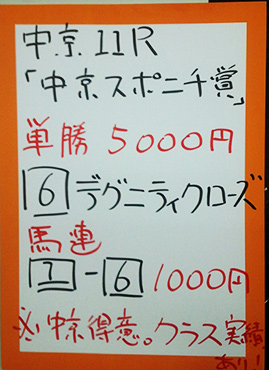 中京11R
「中京スポニチ賞」
単勝 5000円
6 デグニティクローズ
馬連
1-6 1000円
※中京得意。クラス実績
あり!